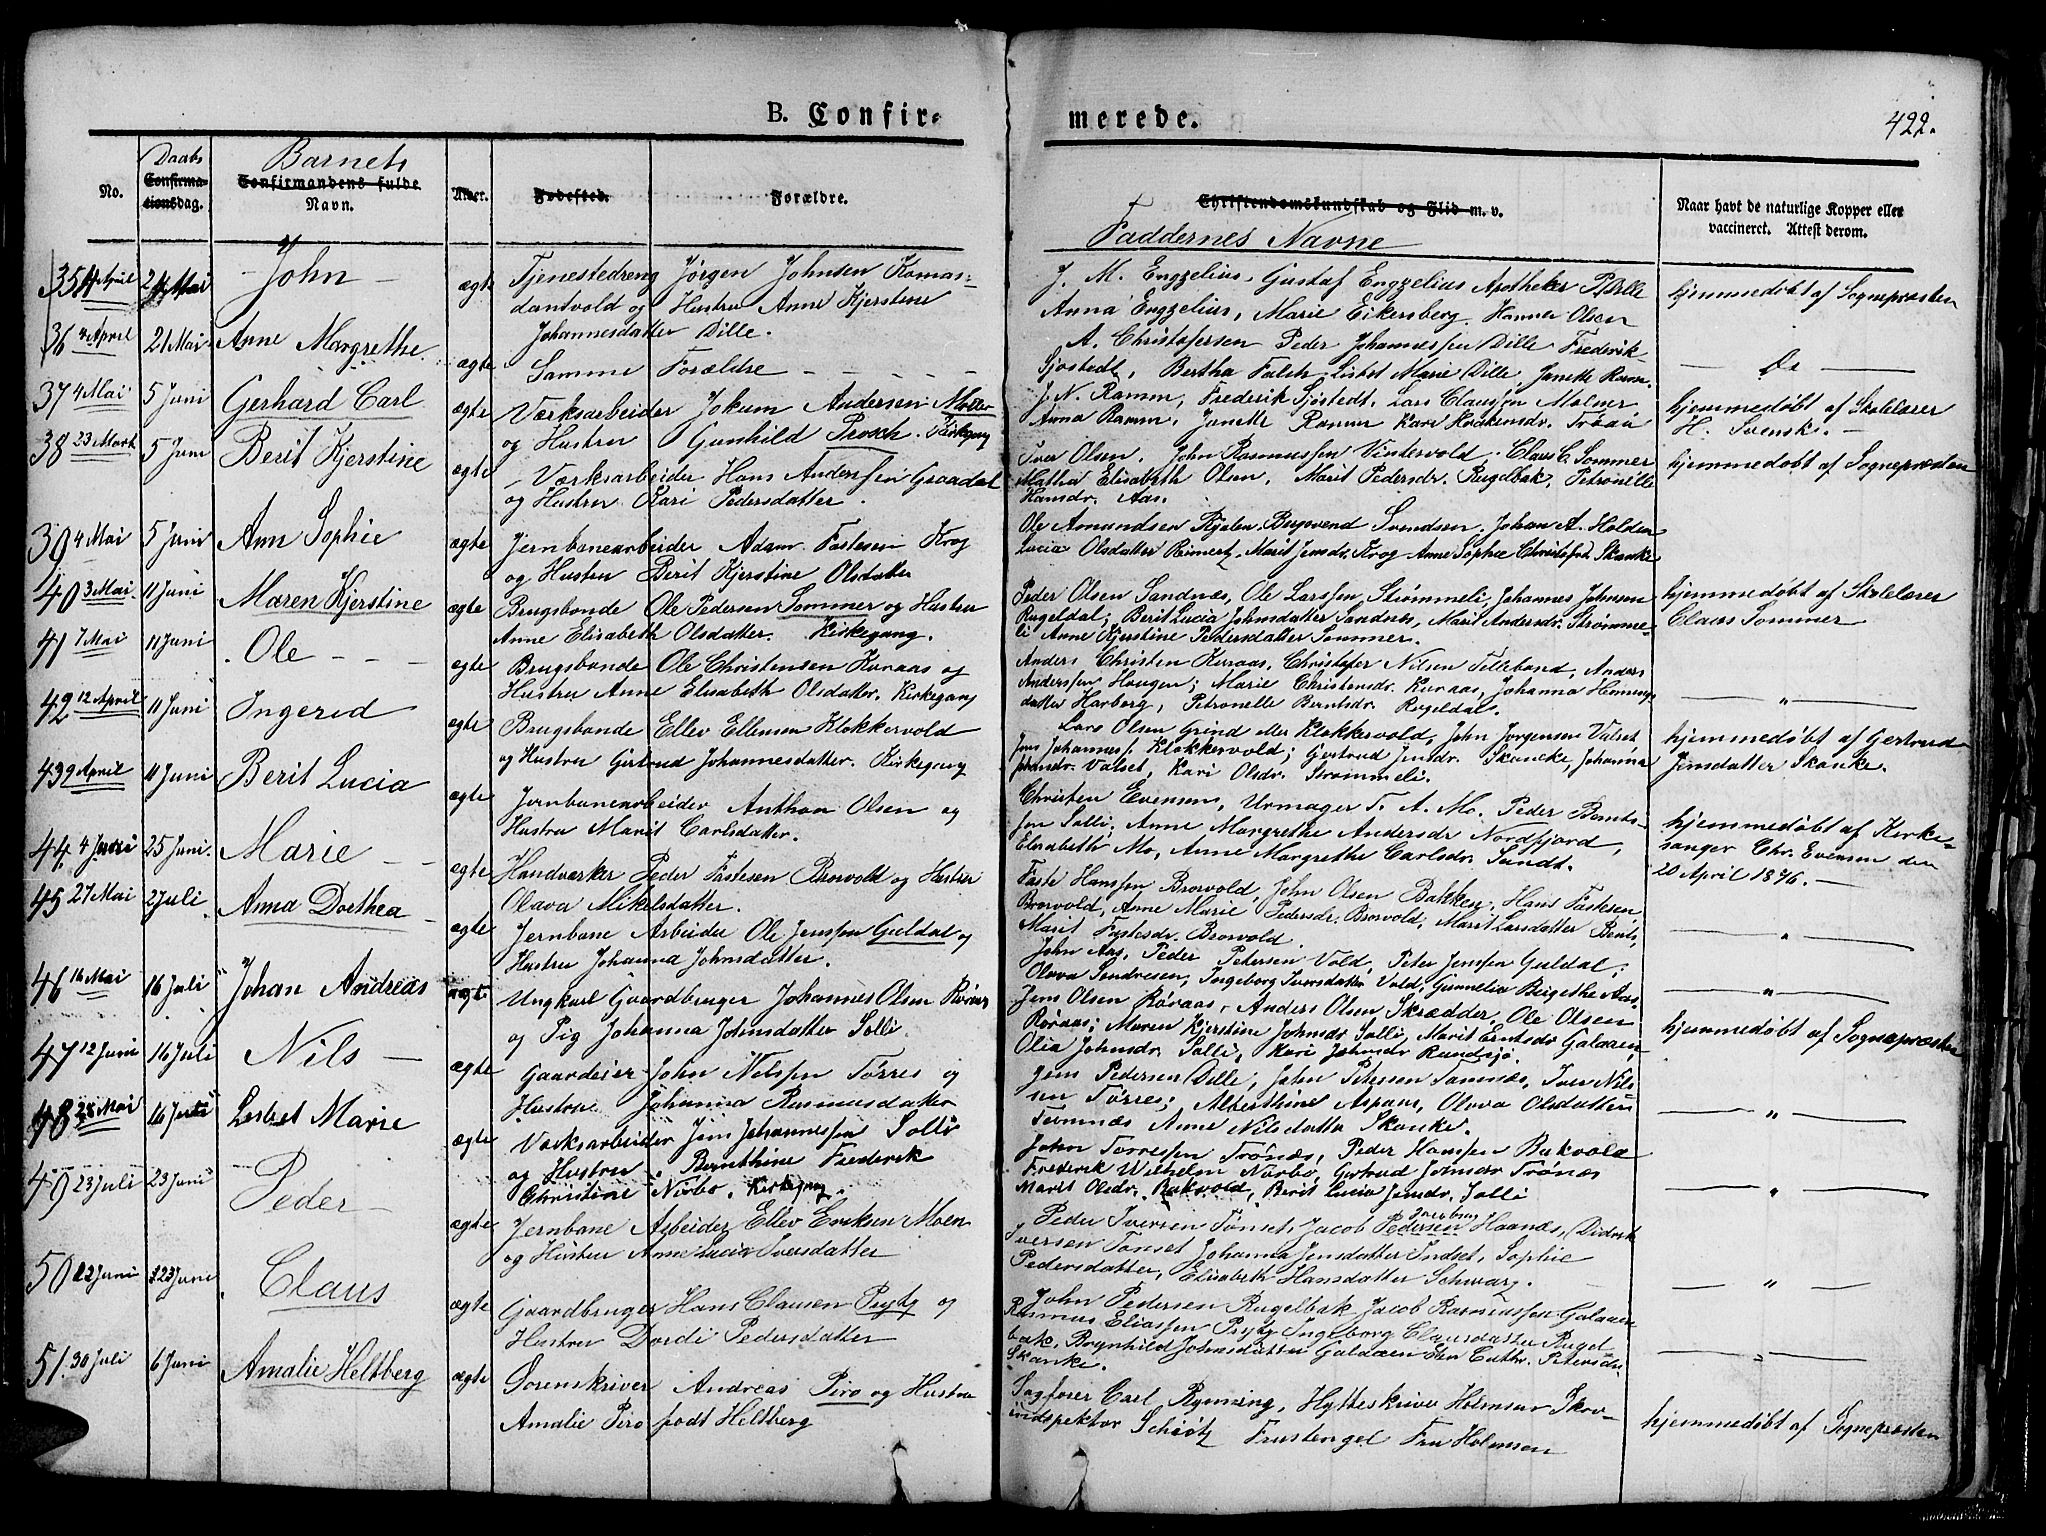 B. Confir-
merede.
422.
No.
Daabs
Confirma-
tionsdag.
Barnets
Confirmandens fulde
Navn.
Alder.
Fødested.
Forældre.
Christendomskundskab og Flid m. v.
Faddernes Navne
Naar havt de naturlige Kopper eller
vaccineret. Attest derom.
35 4 April 21 Mai John ægte Tjenestedreng Jørgen Johnsen Koman-
dantvold og Hustru Anne Kjerstine
Johannesdatter Dille.
J. M. Engzelius, Gustaf Engzelius Apotheker P. Dille
Anna Engzelius, Marie Eikersberg, Hanna Olsen
hjemmedøbt af Sognepresten
36 4 April 21 Mai Anne Margrethe ægte Samme Forældre
A. Christofersen Peder Johannessen Dille Frederik
Sjøstedt, Bertha Falch Lisbet Marie Dille, Janette Ramm
— Do —
37 4 Mai 5 Juni Gerhard Carl ægte Værksarbeider Jokum Andersen Møller
og Hustru Gunhild Prosch. Kirkegang
J. N. Ramm, Frederik Sjøstedt, Lars Claussen Malmer
Anna Ramm, Janette Ramm Kari Haakensdr. Trøan
hjemmedøbt af Skolelærer
H. Svensk. —
38 23 Mart 5 Juni Berit Kjerstine ægte Værksarbeider Hans Anderssen Graadal
og Hustru Kari Pedersdatter.
Iver Olsen, John Rasmussen Vintervold, Claus C. Sommer
Mathia Elisabeth Olsen, Marit Pedersdr. Rugelbak, Petronille
Hansdr. Aas.
hjemmedøbt af Sognepresten
39 4 Mai 5 Juni Ann Sophie ægte Jernbanearbeider Adam Fastesen Krog
og Hustru Berit Kjerstine Olsdatter
Ole Amundsen Svendsen, Johan A. Holden
Lucia Olsdatter Marit Jensdr. Krog Anne Sophie Christofd. Skanke
40 3 Mai 11 Juni Maren Kjerstine ægte Brugsbonde Ole Pedersen Sommer og Hustru
Anne Elisabeth Olsdatter. Kirkegang.
Peder Olsen Sandnæs, Ole Larssen Strømmeli, Johannes Johnsen
Rugeldal; Berit Lucia Johnsdatter Sandnæs, Marit Andersdr. Strømme-
li Anne Kjerstine Pedersdatter Sommer.
hjemmedøbt af Skolelærer
Claus Sommer
41 7 Mai 11 Juni Ole ægte Brugsbonde Ole Christensen Kuraas og
Hustru Anne Elisabeth Olsdatter. Kirkegang
Anders Christen Kuraas, Christofer Nilsen Anders
Anderssen Haugen; Marie Christensdr. Kuraas, Johanna Hennings
datter Harborg, Petronelle Berntsdr. Rugeldal.
— „ —
42 12 April 11 Juni Ingerid ægte Brugsbonde Ellev Ellensen Klokkervold
og Hustru Gertrud Johannesdatter. Kirkegang
Lars Olsen Grind eller Klokkervold, John Jørgensen Valset
Jens Johanness. Klokkervold; Gertrud Jensdr. Skancke, Johanna
Johnsdr. Valset, Kari Olsdr. Strømmeli.
hjemmedøbt af Gertrud
Jensdatter Skanke.
43 9 April 11 Juni Berit Lucia ægte Jernbanearbeider Anthon Olsen og
Hustru Marit Carlsdatter.
Christen Evensen, Urmager T. A. Mo, Peder Bernts-
sen Solli; Anne Margrethe Andersdr Nordfjord,
Elisabeth Mo, Anne Margrethe Carlsdr. Sundt.
hjemmedøbt af Kirke-
sanger Chr. Evensen den
20 April 1876. —
44 4 Juni 25 Juni Marie ægte Handværker Peder Fastesen Brovold og Hustru
Olava Mikelsdatter.
Faste Hanssen Brovold, John Olsen Bakken, Hans Fastesen
Brovold, Anne Marie Pedersdr. Brovold, Marit Larsdatter
Marit Fastesdr. Brovold.
— „ —
45 27 Mai 2 Juli Anna Dorthea ægte Jernbane Arbeider Ole Jenssen Guldal og
Hustru Johanna Johnsdatter.
John Aas, Peder Petersen Vold, Peter Jenssen Guldal;
Olava Sendresen, Ingeborg Iversdatter Vold, Gunnelia Birgethe Aas
— „ —
46 14 Mai 16 Juli Johan Andreas uægte Ungkarl Gaardbruger Johannes Olsen Røraas
og Pig Johanna Johnsdatter Solli.
Jens Olsen Røraas, Anders Olsen Skrædder, Ole Olsen
Røraas; Maren Kjerstine Johnsdr Solli, Marit Erntsdr Galaaen,
Olia Johnsdr. Solli, Kari Johnsdr Rundsjø.
hjemmedøbt af Sognepresten
47 12 Juni 16 Juli Nils ægte Gaardeier John Nilssen Torres og
Hustru Johanna Rasmusdatter
Jens Pedersen Dille, John Petersen Tamnæs, Iver Nils-
sen Torres; Alberthine Aspaas, Olava Olsdatter
Tamnæs Anne Nilsdatter Skanke.
— „ —
48 28 Mai 16 Juli Lisbet Marie ægte Værksarbeider Jens Johannessen Solli
og Hustru Bernthine Frederik
Christine Norbo. Kirkegang.
John Torresen Trønæs, Peder Hanssen Bukvold
Frederik Wilhelm Norbo, Gertrud Johnsdr Trønæs
Marit Olsdr. Bukvold, Berit Lucia Jensdr. Solli
— „ —
49 23 Juli 23 Juni Peder ægte Jernbane Arbeider Ellev Eriksen Moen
og Hustru Anne Lucia Iversdatter
Peder Iversen Tønset, Jacob Pedersen Haanæs, Didrik
Iversen Tønset Johanna Jensdatter Indset, Sophie
Pedersdatter, Elisabeth Hansdatter Schwarz.
— „ —
50 22 Juni 23 Juni Claus ægte Gaardbruger Hans Clausen Prytz og
Hustru Dordi Pedersdatter
John Pedersen Rugelbak Jacob Rasmussen Galaaen
Rasmus Eliassen Prytz Ingeborg Clausdatter Rugel-
bak, Ragnhild Johnsdatter Galaaen Elen Cathr. Petersdr.
Skanke.
— „ —
51. 30 Juli 6 Juni Amalie Heltberg ægte Sorenskriver Andreas Piro og Hustru
Amalie Piro født Heltberg
Sagfører Carl Rynning, Hytteskriver Holmsen Skov-
inspektør Schiøtz Fru Holmsen
hjemmedøbt af Sognepresten